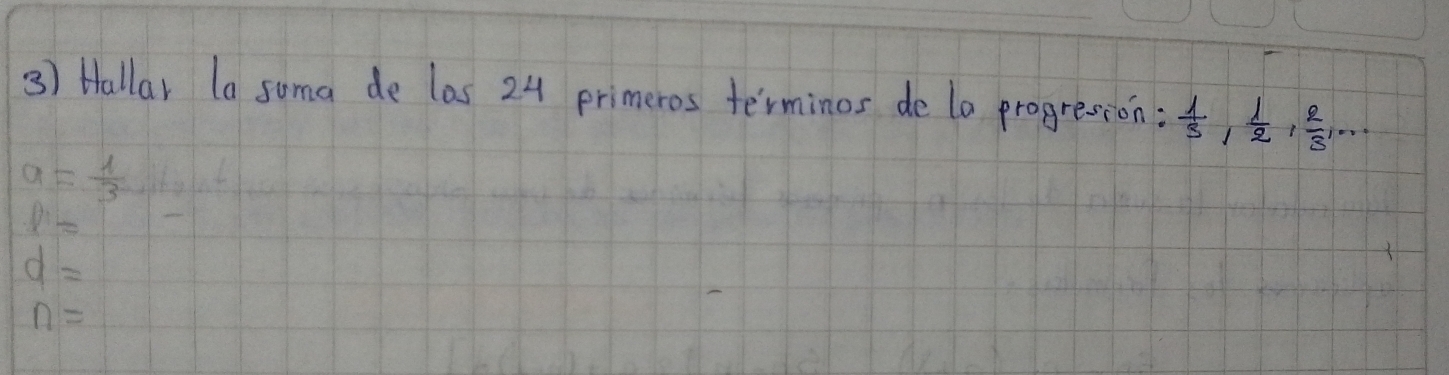 3) Hallar la suma de las 24 primeros términos de la progresión: 1/3, 1/2, 2/3,...
a = 1/3
l =
d =
n =